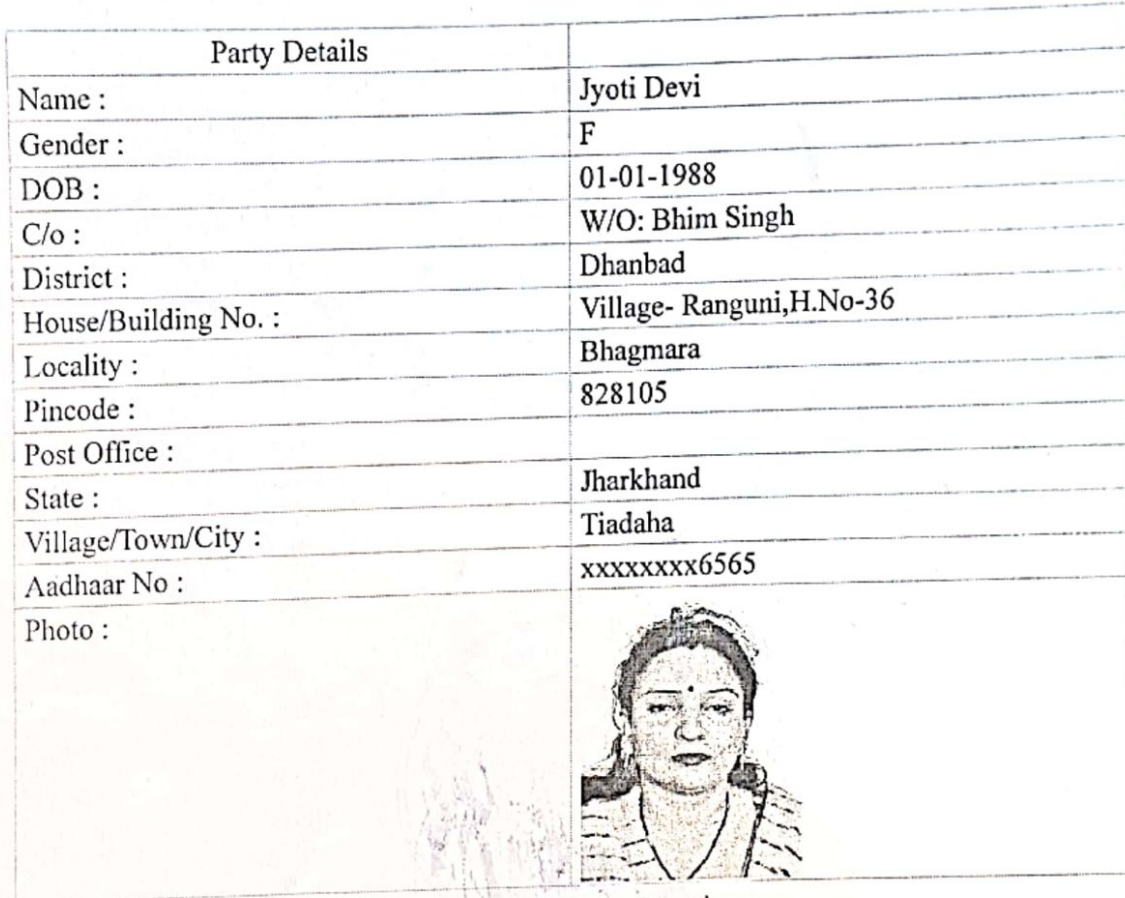 Party Details
Name : Jyoti Devi
Gender : F
DOB : 01-01-1988
C/o : W/O: Bhim Singh
District : Dhanbad
House/Building No. : Village- Ranguni,H.No-36
Locality : Bhagmara
Pincode : 828105
Post Office :
State : Jharkhand
Village/Town/City : Tiadaha
Aadhaar No : xxxxxxxx6565
Photo :